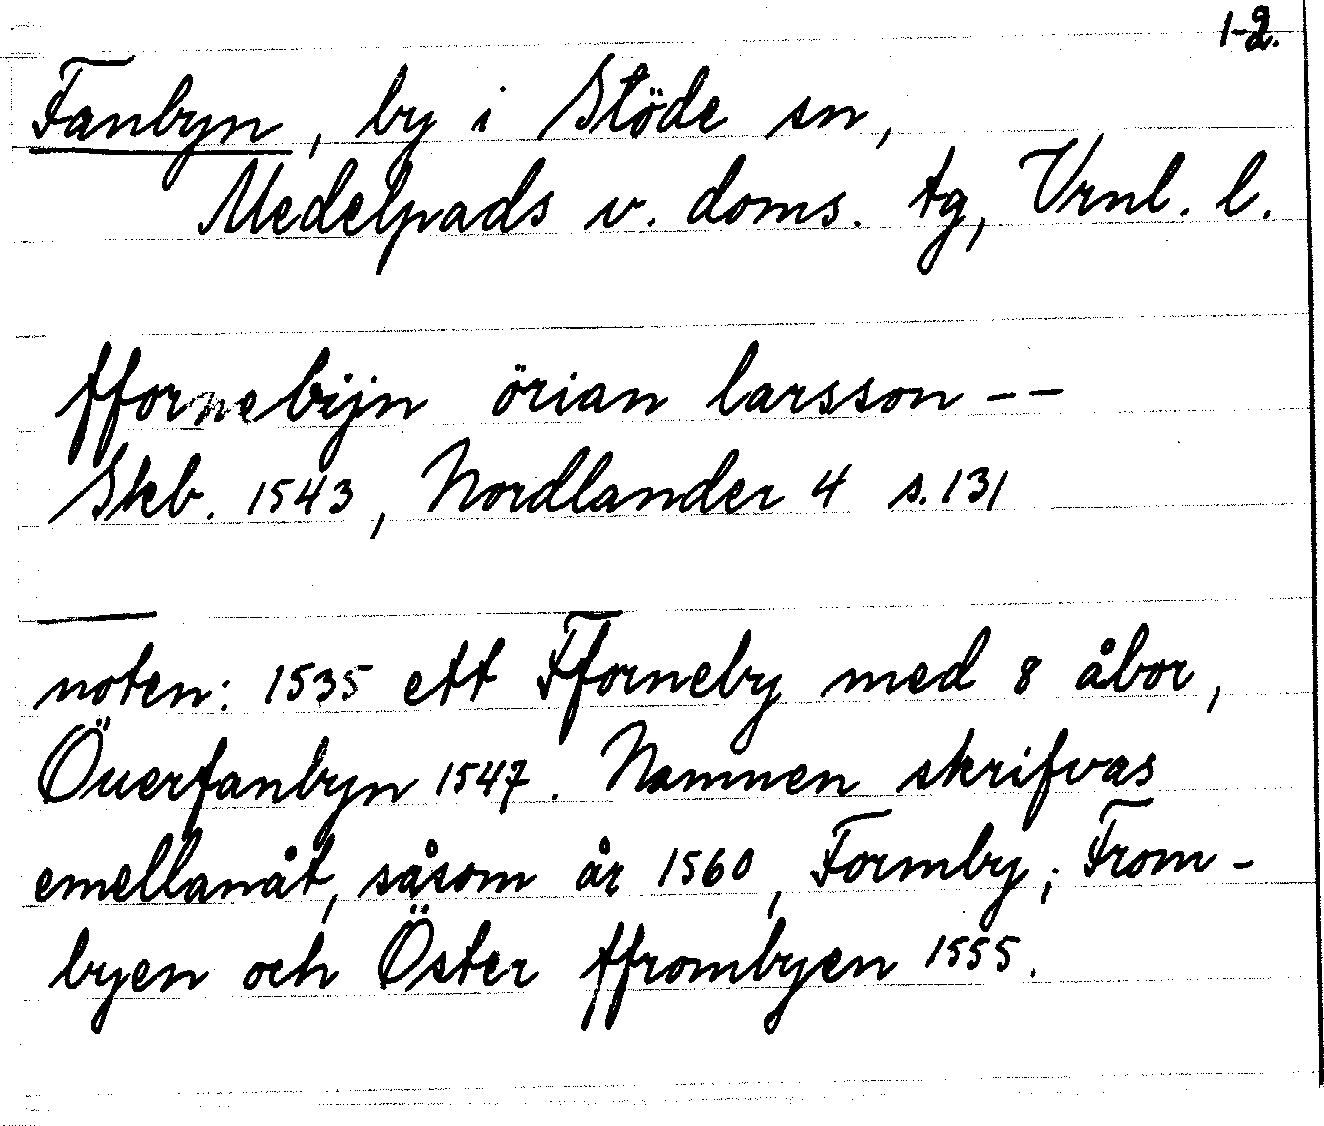 1-2.
Fanbyn, by i Stöde sn,
Medelpads v. doms. tg, Vrnl. l.
ffornebijn örian larsson --
Skb. 1543, Nordlander 4 s. 131
noten: 1535 ett Fforneby med 8 åbor,
Öuerfanbyn 1547. Namnen skrifvas
emellanåt, såsom år 1560, Formby; From-
byen och Öster ffrombyen 1555.